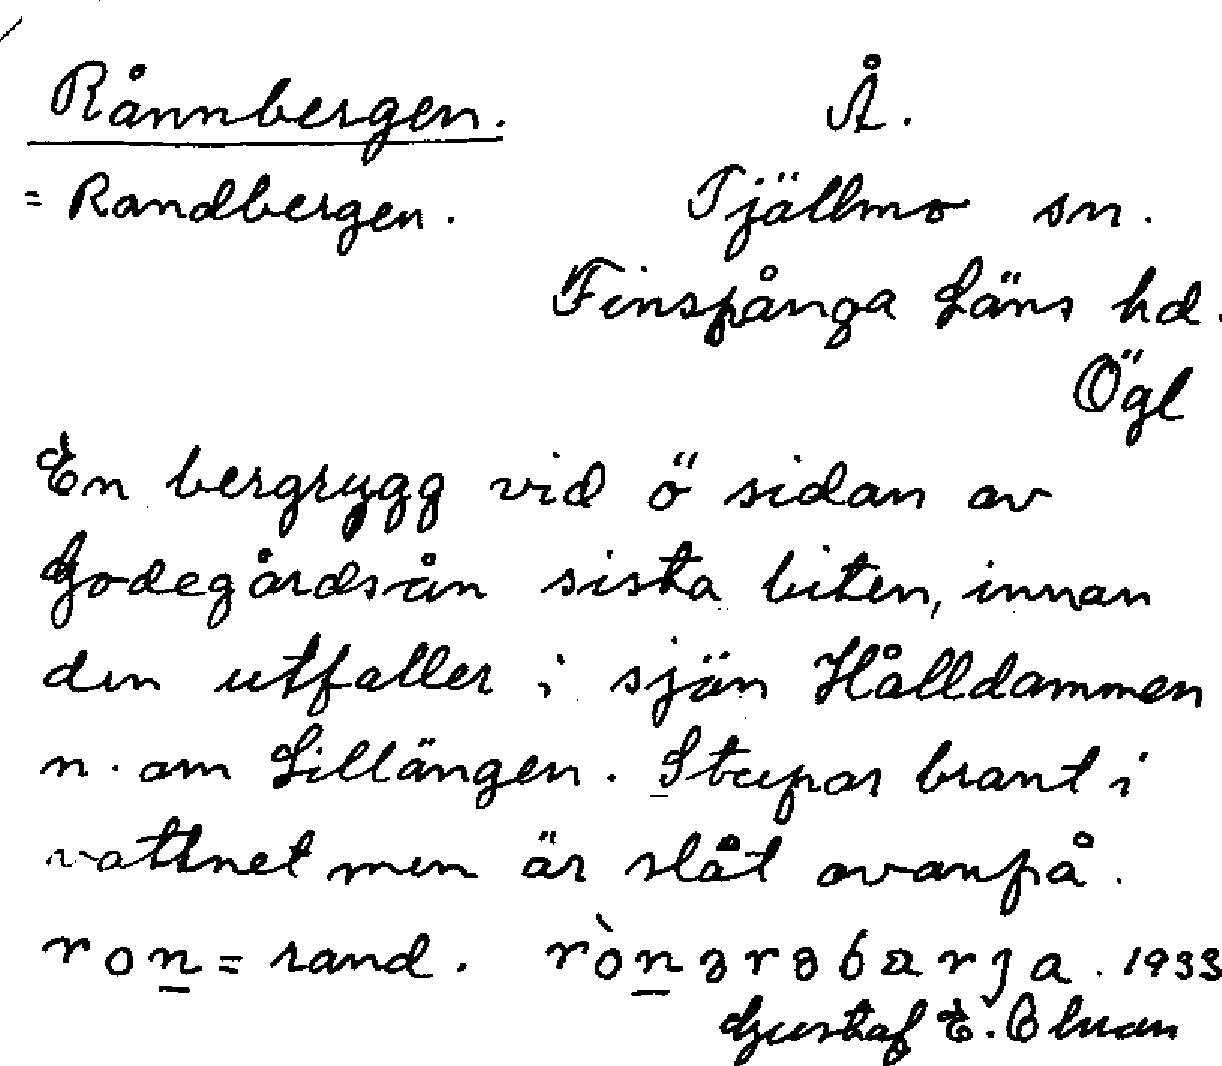 Rånnbergen. Å.
= Randbergen. Tjällmo sn.
Finspånga Läns hd.
Ögl
En bergrygg vid ö sidan av
Godegårdsån sista biten, innan
den utfaller i sjön Hålldammen
n. om Lillängen. Stupar brant i
vattnet men är slät ovanpå.
ron = rand. 1933
Gustaf E.